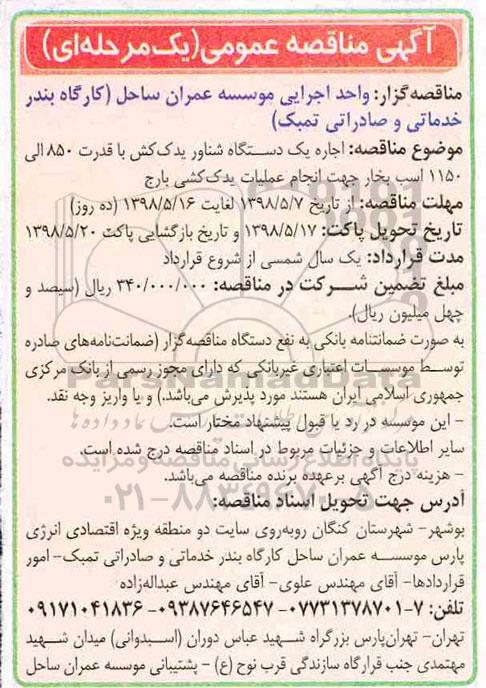 آگهی مناقصه عمومی(یک‌مرحله‌ای)
مناقصه‌گزار: واحد اجرایی موسسه عمران ساحل (کارگاه بندر
خدماتی و صادراتی تمبک)
موضوع مناقصه: اجاره یک دستگاه شناور یدک‌کش با قدرت ۸۵۰ الی
۱۱۵۰ اسب بخار جهت انجام عملیات یدک‌کشی بارج
مهلت مناقصه: از تاریخ ۱۳۹۸/۵/۷ لغایت ۱۳۹۸/۵/۱۶ (ده روز)
تاریخ تحویل پاکت: ۱۳۹۸/۵/۱۷ و تاریخ بازگشایی پاکت ۱۳۹۸/۵/۲۰
مدت قرارداد: یک سال شمسی از شروع قرارداد
مبلغ تضمین شرکت در مناقصه: ۳۴۰/۰۰۰/۰۰۰ ریال (سیصد و
چهل میلیون ریال).
به صورت ضمانتنامه بانکی به نفع دستگاه مناقصه‌گزار (ضمانت‌نامه‌های صادره
توسط موسسات اعتباری غیربانکی که دارای مجوز رسمی از بانک مرکزی
جمهوری اسلامی ایران هستند مورد پذیرش می‌باشد.) و یا واریز وجه نقد.
- این موسسه در رد یا قبول پیشنهاد مختار است.
سایر اطلاعات و جزئیات مربوط در اسناد مناقصه درج شده است.
- هزینه درج آگهی برعهده برنده مناقصه می‌باشد.
آدرس جهت تحویل اسناد مناقصه:
بوشهر- شهرستان کنگان روبه‌روی سایت دو منطقه ویژه اقتصادی انرژی
پارس موسسه عمران ساحل کارگاه بندر خدماتی و صادراتی تمبک- امور
قراردادها- آقای مهندس علوی- آقای مهندس عبداله‌زاده
تلفن: ۷-۰۷۷۳۱۳۷۸۷۰۱- ۰۹۳۸۷۶۴۶۵۴۷- ۰۹۱۷۱۰۴۱۸۳۶
تهران- تهران‌پارس بزرگراه شهید عباس دوران (اسبدوانی) میدان شهید
مهتمدی جنب قرارگاه سازندگی قرب نوح (ع) - پشتیبانی موسسه عمران ساحل
ParsNamadData
پایگاه اطلاع رسانی مناقصه و مزایده
۰۲۱-۸۸۳۴۹۶۷۰-۵